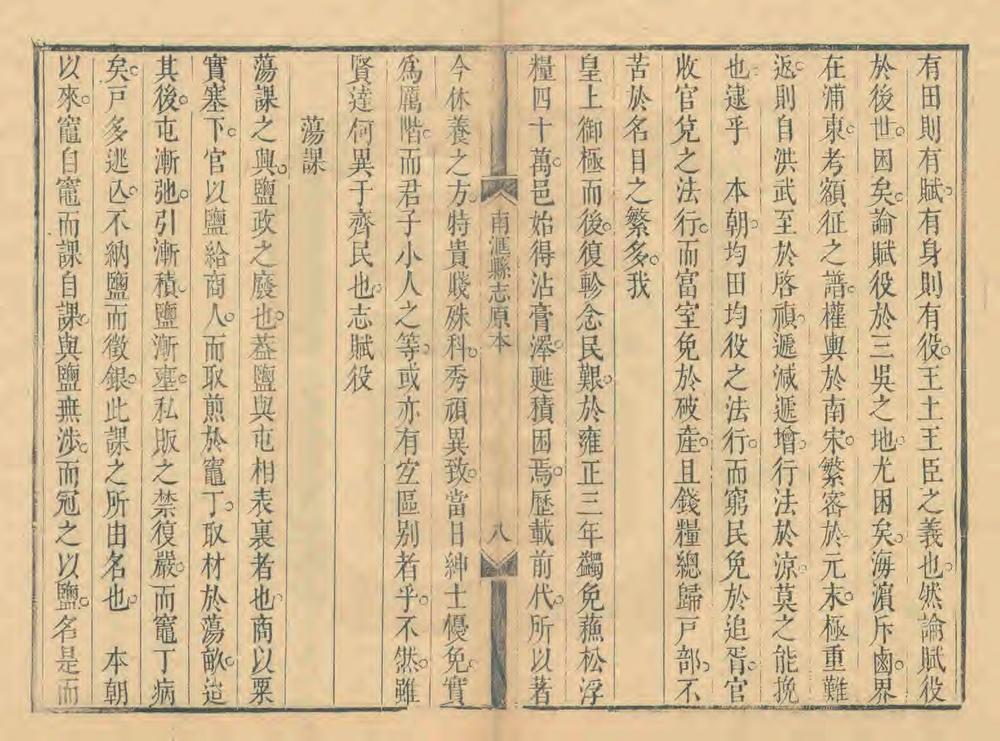 有田則有賦有身則有役王土王臣之義也然論賦役
於後世困矣論賦役於三吳之地尤困矣海濵斥鹵界
在浦東考額征之譜權輿於南宋繁密於元末極重難
返則自洪武至於啓禎遞減遞增行法於凉莫之能挽
也逮乎　本朝均田均役之法行而窮民免於追胥官
收官兌之法行而富室免於破產且錢糧總歸戸部不
苦於名目之繁多我
皇上御極而後復軫念民艱於雍正三年蠲免蘓松浮
糧四十萬邑始得沾膏澤甦積困焉歷載前代所以著
南滙縣志原本　八
今休養之方特貴賤殊科秀頑異致當日紳士優免實
爲厲階而君子小人之等或亦有宜區别者乎不然雖
賢達何異于齊民也志賦役
蕩課
蕩課之興鹽政之廢也葢鹽與屯相表裏者也商以粟
實塞下官以鹽給商人而取煎於竈丁取材於蕩畝迨
其後屯漸弛引漸積鹽漸壅私販之禁復嚴而竈丁病
矣戸多逃亾不納鹽而徵銀此課之所由名也　本朝
以來竈自竈而課自課與鹽無涉而冠之以鹽名是而